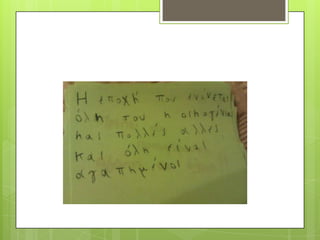 Η εποχή που ενονεται
όλη του η οικογένια
και πολλές αλλες
και όλη είναι
αγαπημένοι